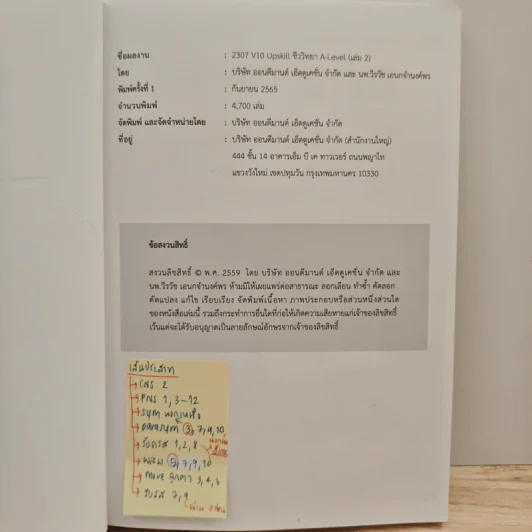 ชื่อผลงาน : 2307 V10 Upskill ชีววิทยา A-Level (เล่ม 2)
โดย : บริษัท ออนดีมานด์ เอ็ดดูเคชั่น จำกัด และ นพ.วีรวัช เอนกจำนงค์พร
พิมพ์ครั้งที่ 1 : กันยายน 2565
จำนวนพิมพ์ : 4,700 เล่ม
จัดพิมพ์ และจัดจำหน่ายโดย : บริษัท ออนดีมานด์ เอ็ดดูเคชั่น จำกัด
ที่อยู่ : บริษัท ออนดีมานด์ เอ็ดดูเคชั่น จำกัด (สำนักงานใหญ่)
444 ชั้น 14 อาคารเอ็ม บี เค ทาวเวอร์ ถนนพญาไท
แขวงวังใหม่ เขตปทุมวัน กรุงเทพมหานคร 10330
ข้อสงวนสิทธิ์
สงวนลิขสิทธิ์ © พ.ศ. 2559 โดย บริษัท ออนดีมานด์ เอ็ดดูเคชั่น จำกัด และ
นพ.วีรวัช เอนกจำนงค์พร ห้ามมิให้เผยแพร่ต่อสาธารณะ ลอกเลียน ทำซ้ำ คัดลอก
ดัดแปลง แก้ไข เรียบเรียง จัดพิมพ์เนื้อหา ภาพประกอบหรือส่วนหนึ่งส่วนใด
ของหนังสือเล่มนี้ รวมถึงกระทำการอื่นใดที่ก่อให้เกิดความเสียหายแก่เจ้าของลิขสิทธิ์
เว้นแต่จะได้รับอนุญาตเป็นลายลักษณ์อักษรจากเจ้าของลิขสิทธิ์
เส้นประสาท
CNS 2
PNS 1, 3-12
3, 7, 9, 10
รับความรู้สึก 1, 2, 8
ผสม 5, 7, 9, 10
move ลูกตา 3, 4, 6
รับรส 7, 9